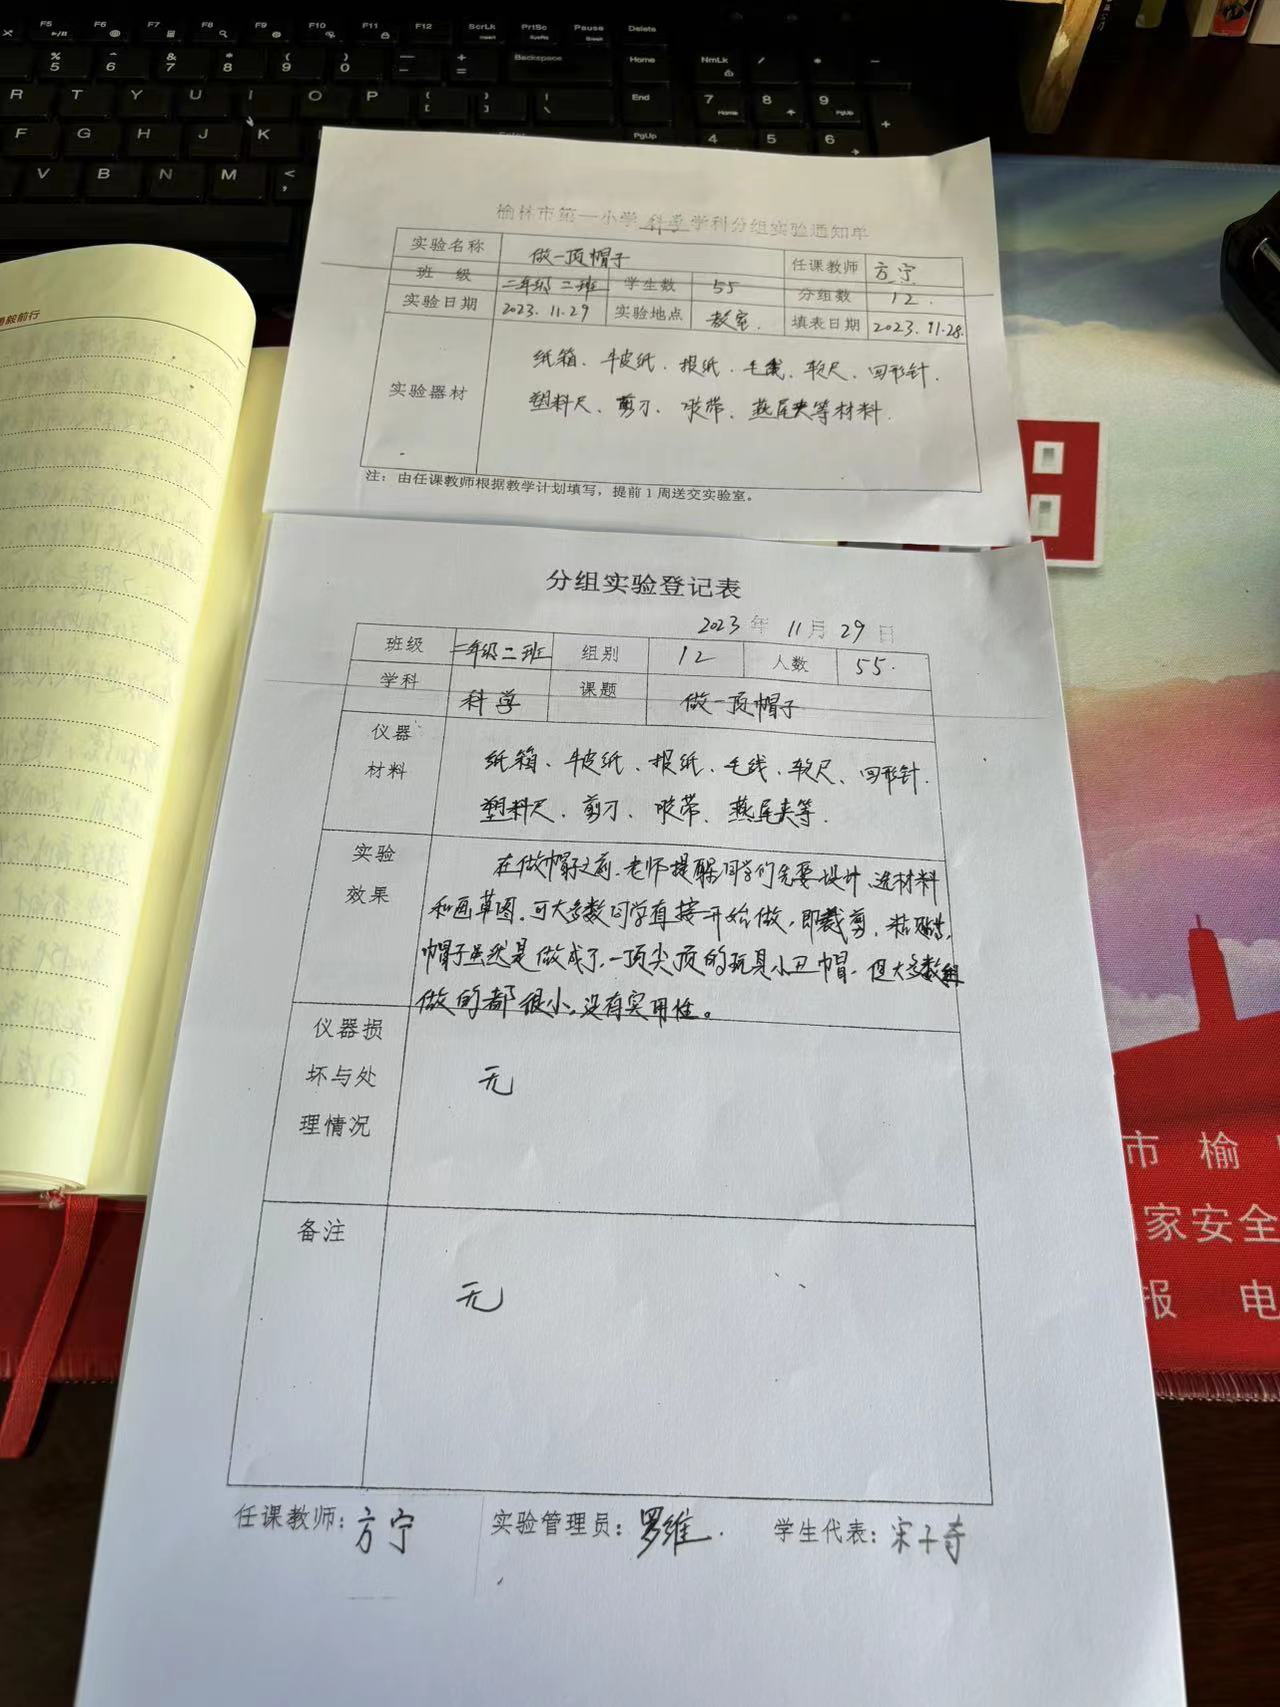 F5 F6 F7 F8 F9 F10 F11 F12 ScrLk PrtSc Pause Delete
% 5 ^ 6 & 7 * 8 ( 9 ) 0 — - + = Backspace Home NmLk / * -
R T Y U I O P { [ } ] | \ End 7 Home 8 9 PgUp
F G H J K PgUp 4 5 6 +
V B N M < ,
毅前行
榆林市第一小学 科学 学科分组实验通知单
实验名称 做一顶帽子 任课教师 方宁
班 级 二年级二班 学生数 55 分组数 12.
实验日期 2023.11.29 实验地点 教室. 填表日期 2023.11.28.
实验器材 纸箱、牛皮纸、报纸、毛线、软尺、回形针.
塑料尺、剪刀、胶带、燕尾夹等材料.
注：由任课教师根据教学计划填写，提前1周送交实验室。
分组实验登记表
2023 年 11 月 29 日
班级 二年级二班 组别 12 人数 55.
学科 科学 课题 做一顶帽子
仪器材料 纸箱、牛皮纸、报纸、毛线、软尺、回形针.
塑料尺、剪刀、胶带、燕尾夹等.
实验效果 在做帽子之前,老师提醒同学们先要设计、选材料
和画草图,可大多数同学直接开始做,即裁剪、粘贴,
帽子虽然是做成了,一顶尖顶的玩具小丑帽,但大多数组
做的都很小,没有实用性。
仪器损坏与处理情况 无
备注 无
任课教师：方宁 实验管理员：罗维. 学生代表：宋子奇
市 榆
家安全
报 电